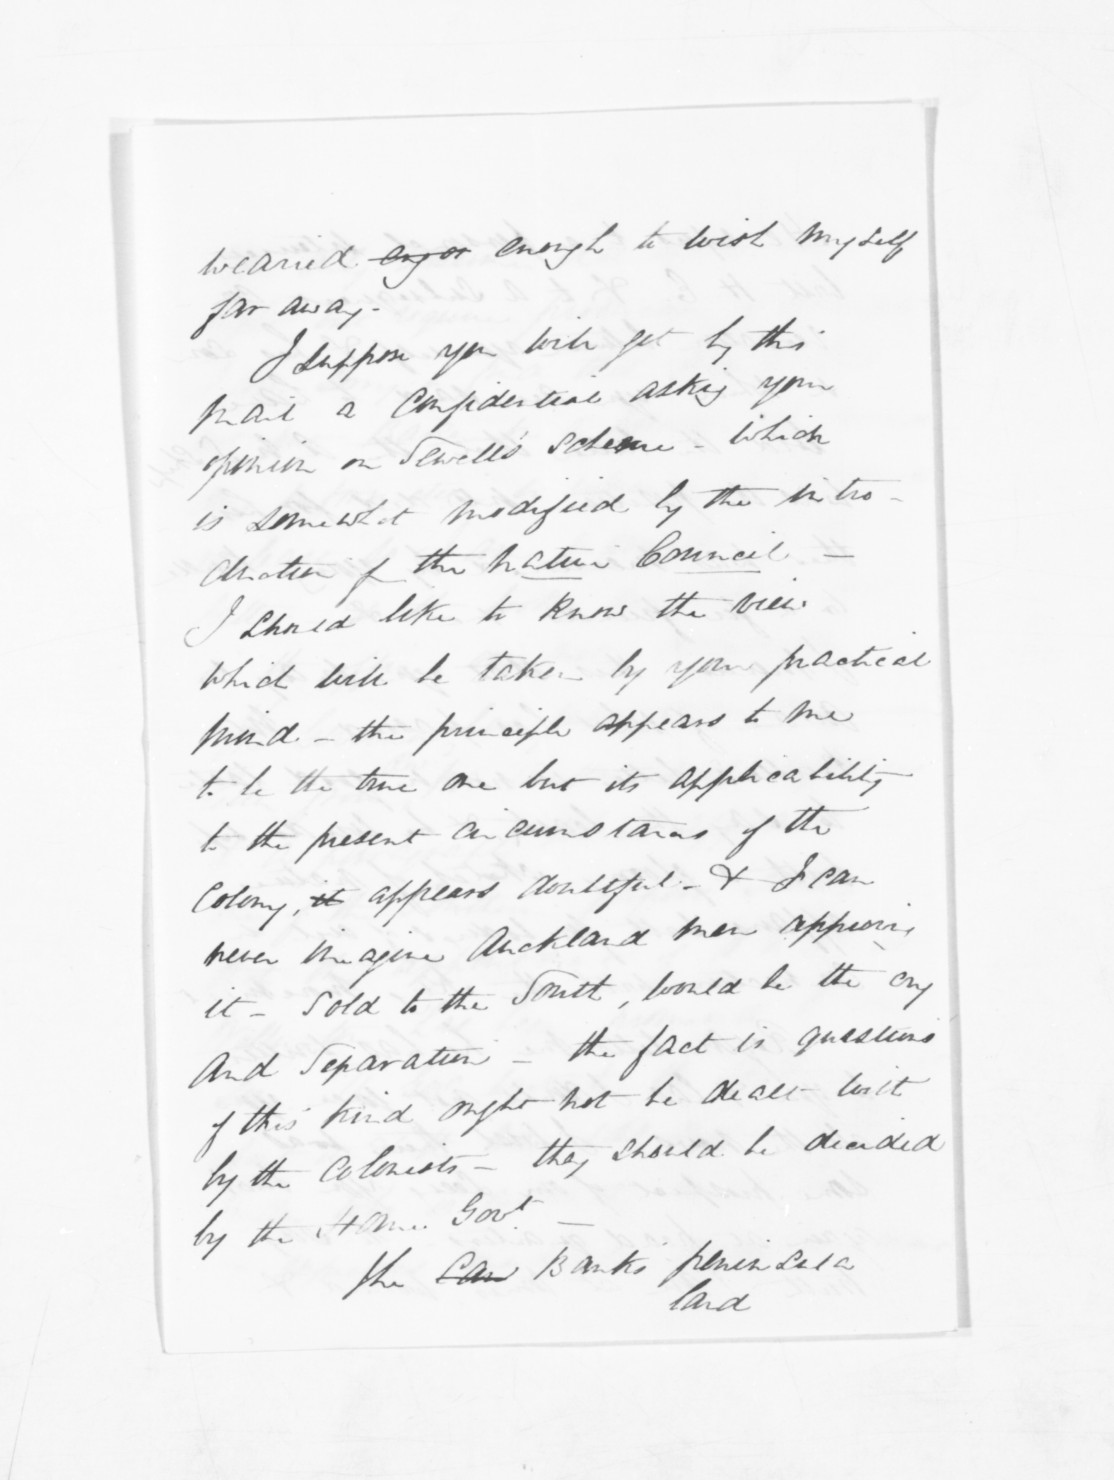 wearied enough to wish myself
far away -
I suppose you will get by this
mail a Confidential asking your
opinion on Sewell's scheme - which
is somewhat modified by the intro-
duction of the Native Council -
I should like to know the view
which will be taken by your practical
mind - the principle appears to me
to be the true one but its applicability
to the present circumstances of the
Colony, it appears doubtful - & I can
never imagine Auckland men approving
it - Sold to the South, would be the cry
and Separation - the fact is questions
of this kind ought not be dealt with
by the Colonists - they should be decided
by the Home Govt. -
The Law Banks' peninsula
land